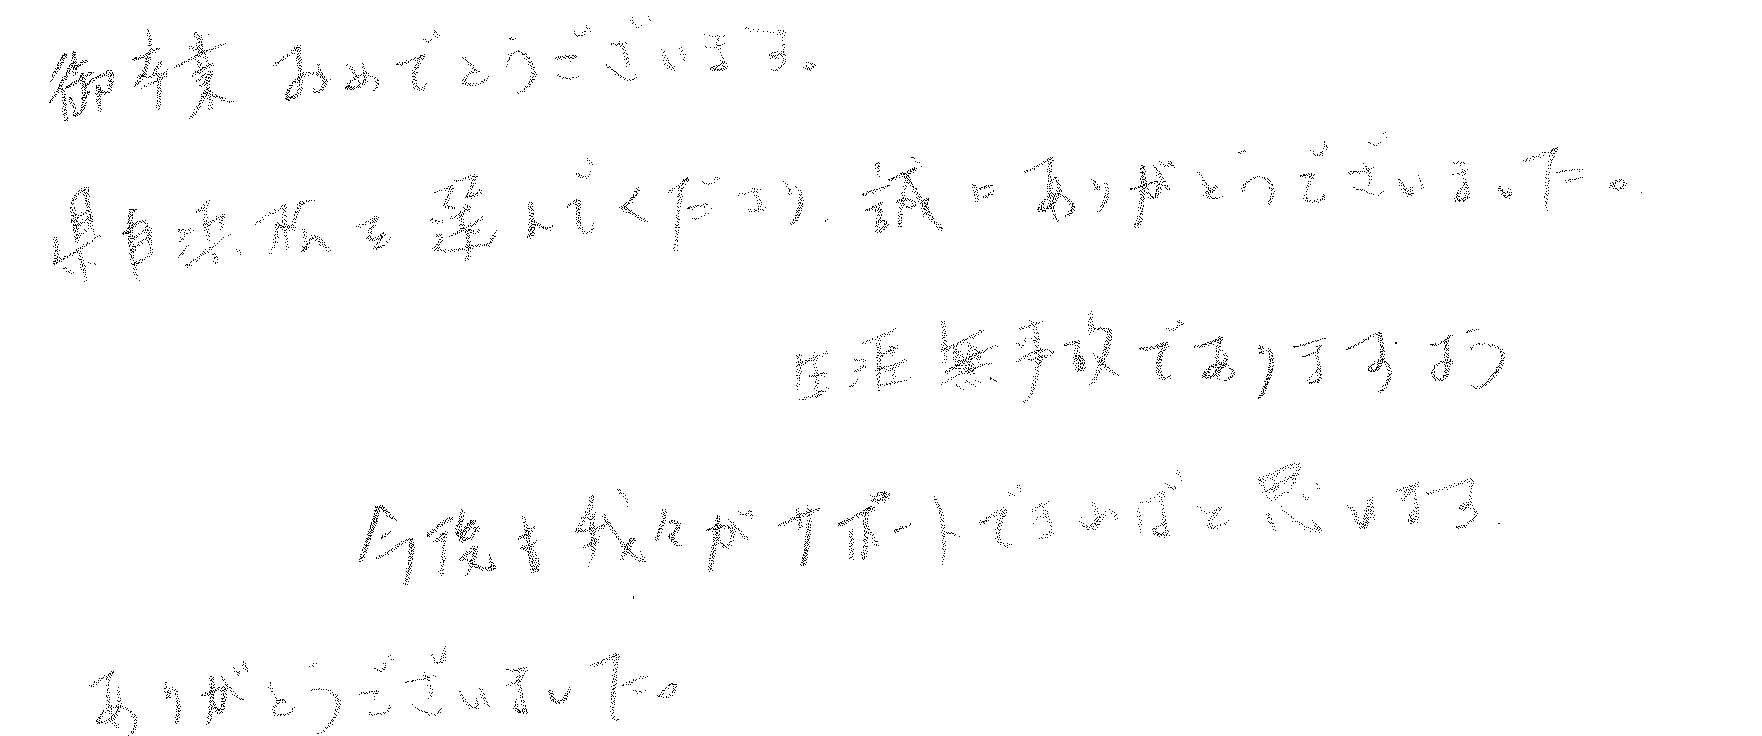 御卒業おめでとうございます。
県自浜松を選んでくださり、誠にありがとうございました。
生涯無事故でありますよう
今後も我々がサポートできればと思います。
ありがとうございました。